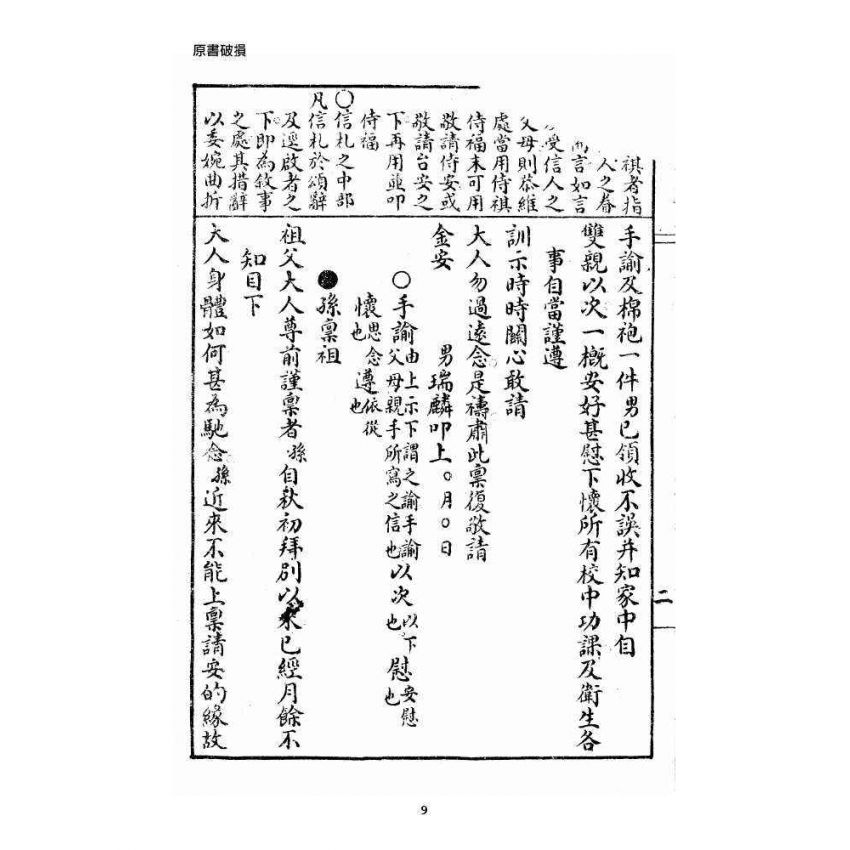 原書破損
祺者指
人之眷
言如言
受信人之
父母則恭維
處當用侍祺
侍福未可用
敬請侍安或
敬請台安之
下再用並叩
侍福
〇信札之中部
凡信札於頌辭
及逕啟者之
下即為敘事
之處其措辭
以委婉曲折
二
手諭及棉袍一件男已領收不誤并知家中自
雙親以次一概安好甚慰下懷所有校中功課及衛生各
事自當謹遵
訓示時時關心敢請
大人勿過遠念是禱肅此稟復敬請
金安 男瑞麟叩上〇月〇日
〇手諭由上示下謂之諭手諭父母親手所寫之信也以次以下也慰安慰也
懷思念也遵依從也
●孫稟祖
祖父大人尊前謹稟者孫自秋初拜別以來已經月餘不
知目下
大人身體如何甚為馳念孫近來不能上稟請安的緣故
9